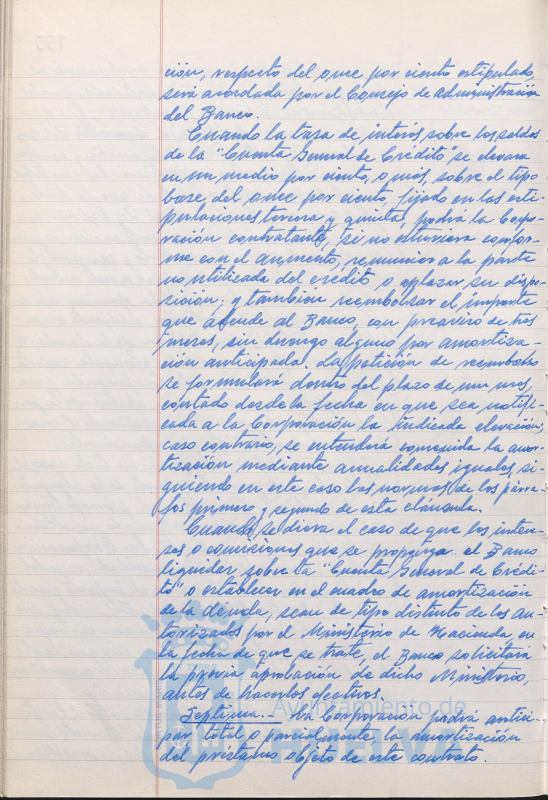 ción, respecto del once por ciento estipulado,
será acordada por el Consejo de Administración
del Banco.
Cuando la tasa de interés sobre los saldos
de la "Cuenta General de Crédito" se elevara
en un medio por ciento, o más, sobre el tipo
base del once por ciento, fijado en las esti-
pulaciones tercera y quinta, podrá la Corpo-
ración contratante, si no estuviera confor-
me con el aumento, renunciar a la parte
no utilizada del crédito o aplazar su dispo-
sición; y también reembolsar el importe
que adeude al Banco, con preaviso de tres
meses, sin devengo alguno por amortiza-
ción anticipada. La petición de reembolso
se formulará dentro del plazo de un mes,
contado desde la fecha en que sea notifi-
cada a la Corporación la indicada elevación;
caso contrario, se entenderá convenida la amor-
tización mediante anualidades iguales, si-
guiendo en este caso las normas de los párra-
fos primero y segundo de esta cláusula.
Cuando se diera el caso de que los intere-
ses o comisiones que se proponga el Banco
liquidar sobre la "Cuenta General de Crédi-
to" o establecer en el cuadro de amortización
de la deuda, sean de tipo distinto de los au-
torizados por el Ministerio de Hacienda, en
la fecha de que se trate, el Banco solicitará
la previa aprobación de dicho Ministerio,
antes de hacerlos efectivos.
Septima.- La Corporación podrá antici
par total o parcialmente la amortización
del préstamo objeto de este contrato.
Ayuntamiento de
HUELVA
155